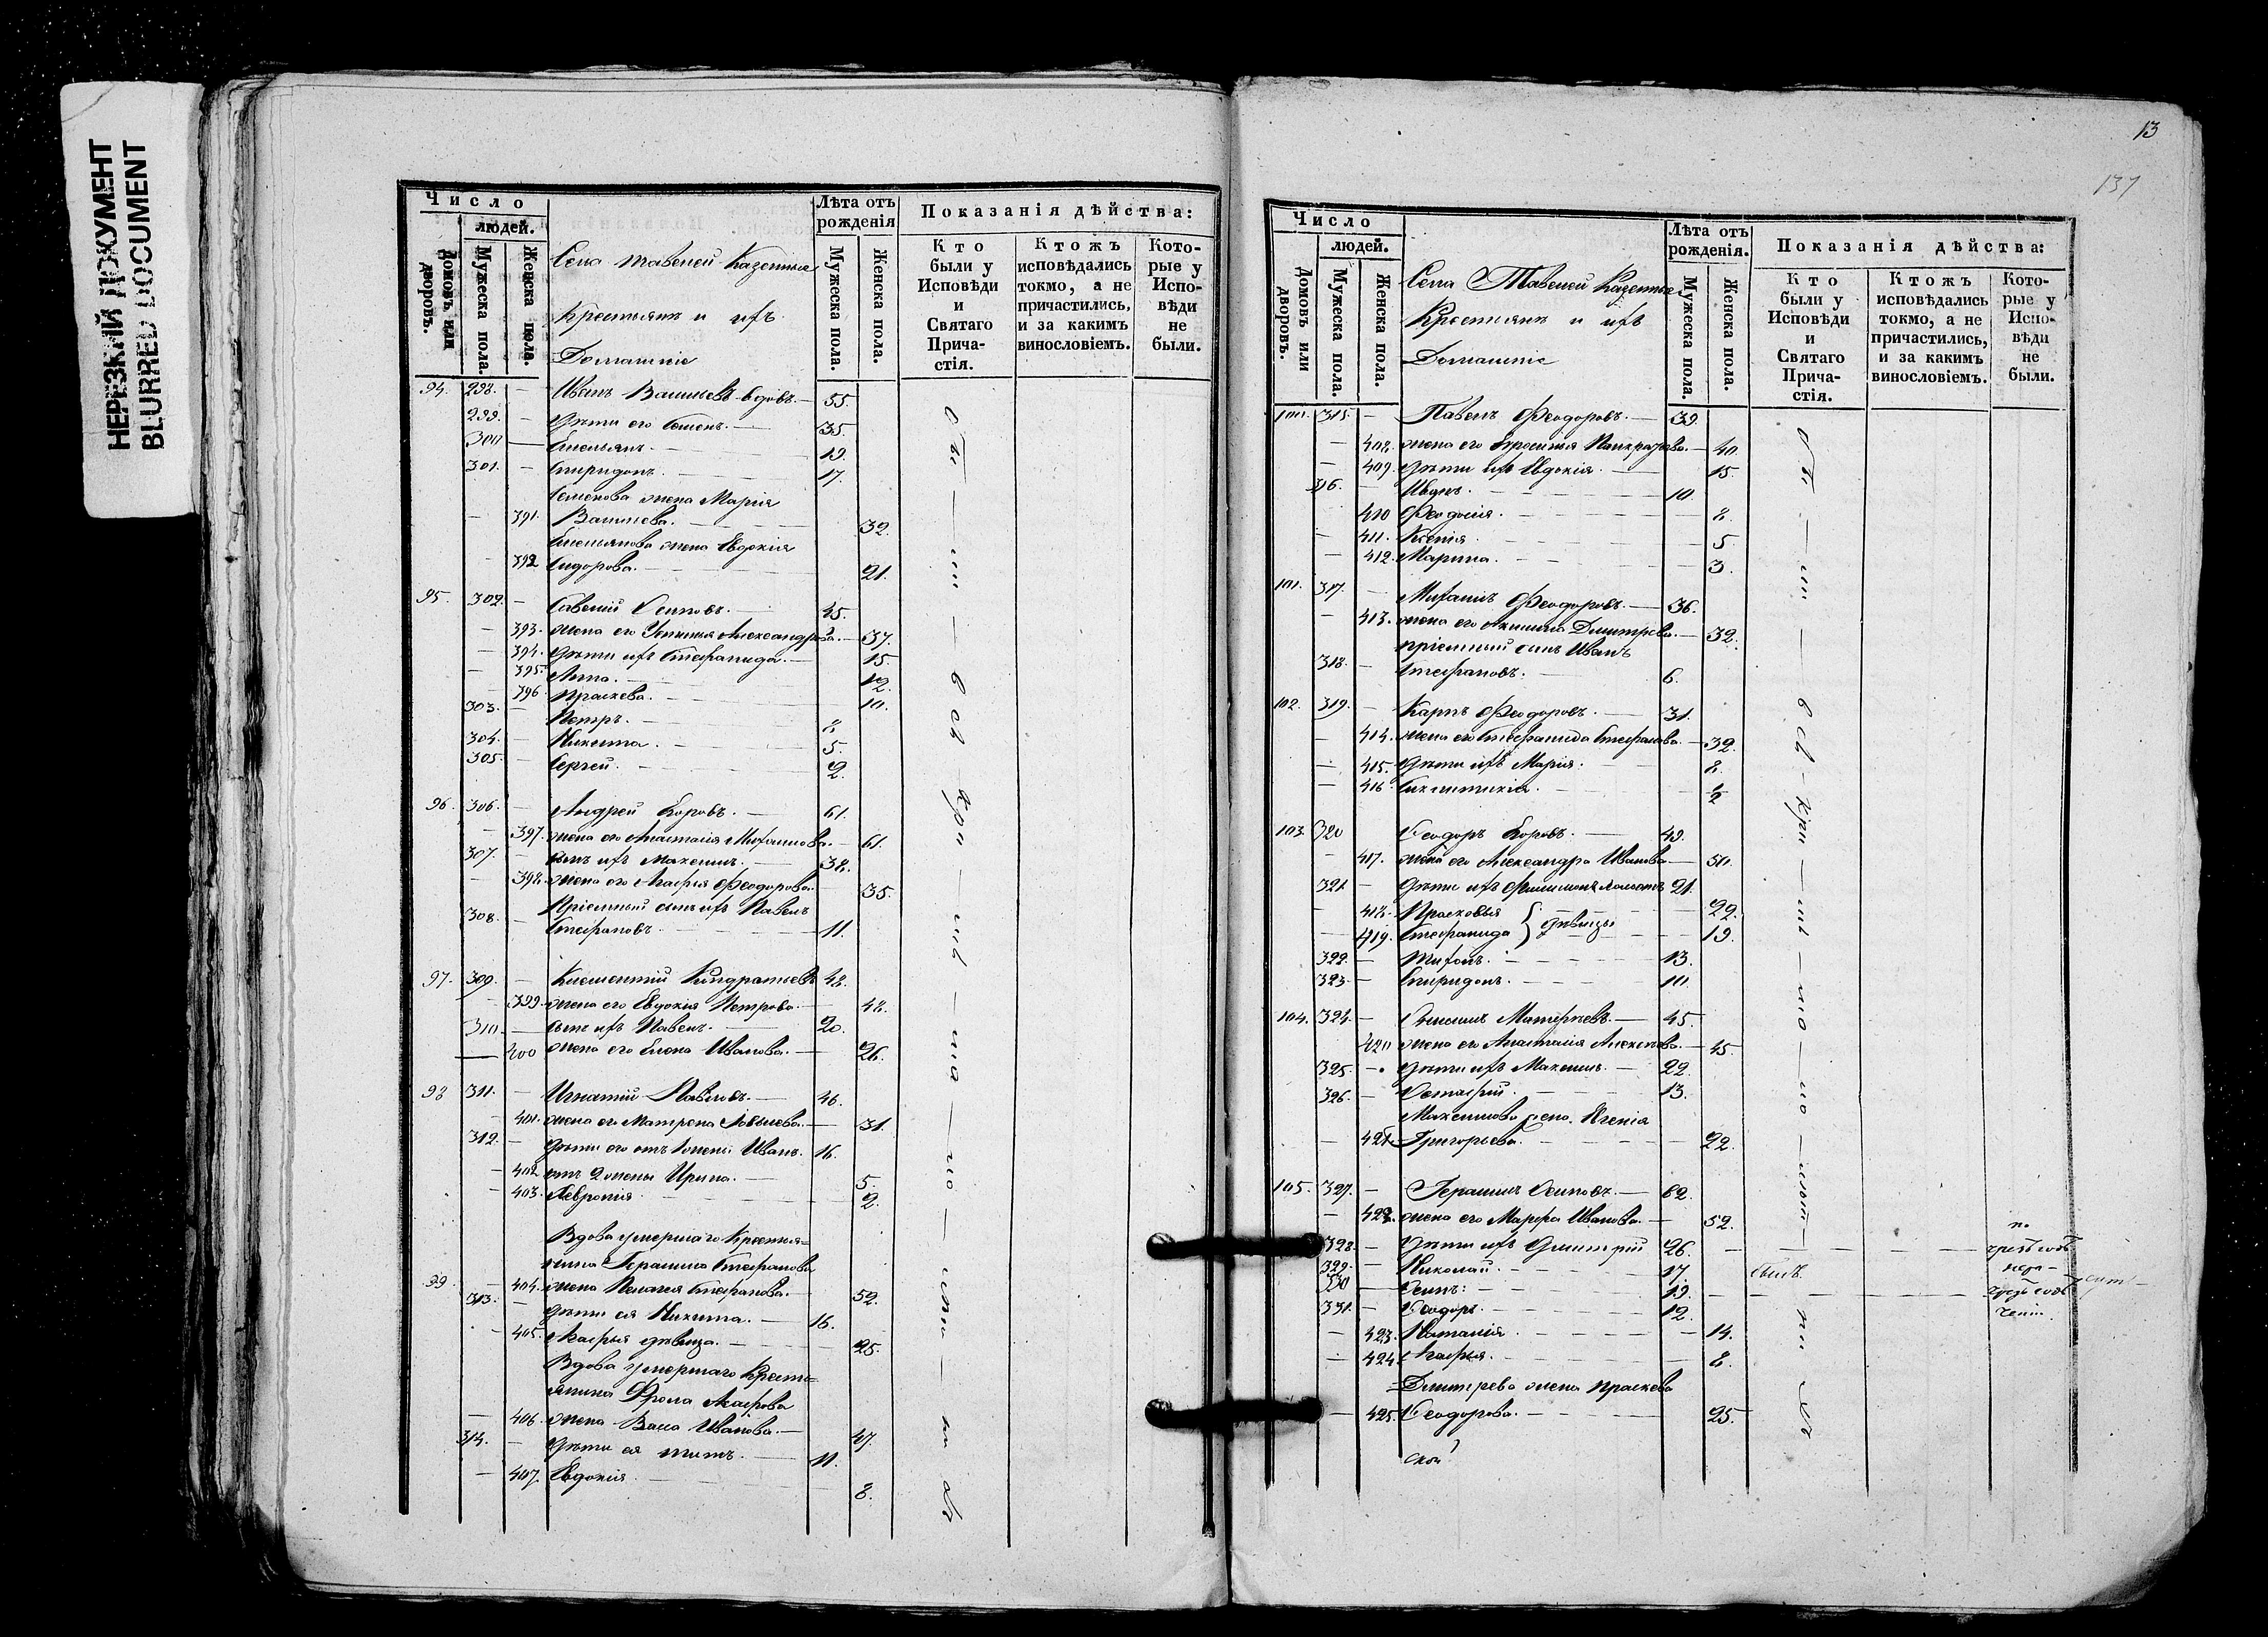 НЕРЕЗКИЙ ДОКУМЕНТ
BLURRED DOCUMENT
Число
людей.
Домовъ или дворовъ.
Мужеска пола.
Женска пола.
Села Тавеней Казенные
Крестьянъ и ихъ
Домашніе
Лѣта отъ рожденія
Мужеска пола.
Женска пола.
Показанія дѣйства:
Кто были у Исповѣди и Святаго Прича-стія.
Ктожъ исповѣдались токмо, а не причастились, и за какимъ винословіемъ.
Кото-рые у Испо-вѣди не были.
94. 298. — Иванъ Васильевъ вдовъ. — 55.
299. — дѣти его Семенъ. — 35.
300 — Емельянъ. — 19.
301. — Спиридонъ. — 17.
Семенова жена Марія
— 391. Васильева. — 32.
Емельянова жена Евдокія
— 392 Сидорова. — 21.
95. 302. — Савелий Осиповъ. — 45.
— 393. жена его Устинья Александрова. — 37.
— 394. дѣти ихъ Стефанида. — 15.
— 395. Анна. — 12.
— 396. Праскева. — 10.
303. — Петръ. — 8
304. — Никита. — 5.
305. — Сергей. — 2.
96. 306. — Андрей Егоровъ. — 61.
— 397. жена его Анастасія Михайлова. — 61.
307. — сынъ ихъ Максимъ. — 38.
— 398. жена его Агафья Феодорова. — 35.
Пріемный сынъ ихъ Павелъ
308. — Стефановъ. — 11.
97. 309. — Климентій Кондратьевъ 48.
— 399. жена его Евдокія Петрова. — 48.
310. — сынъ ихъ Павелъ. — 20.
— 400 жена его Елена Иванова. — 26.
98 311. — Игнатій Павловъ. — 46.
— 401. жена его Матрена — 31.
312. — дѣти его отъ 1 жены Иванъ. 16.
— 402 отъ 2 жены Ирина. — 5.
— 403. Февронія — 2.
Вдова умершаго Крестья=
нина Герасима Стефанова
99. — 404. жена Пелагея Стефанова. — 52.
313. — дѣти ея Никита. — 16.
— 405. Агафья дѣвица. — 25.
Вдова умершаго Кресть=
янина Фрола Агафова
— 406. жена Васса Иванова. — 47.
314. — дѣти ея Титъ. — 11.
— 407. Евдокія. — 8.
13
137
Число
людей.
Домовъ или дворовъ.
Мужеска пола.
Женска пола.
Села Тавеней Казенные
Крестьянъ и ихъ
Домашніе
Лѣта отъ рожденія.
Мужеска пола.
Женска пола.
Показанія дѣйства:
Кто были у Исповѣди и Святаго Прича-стія.
Ктожъ исповѣдались токмо, а не причастились, и за какимъ винословіемъ.
Кото-рые у Испо-вѣди не были.
100. 315. — Павелъ Феодоровъ. — 39.
— 408. жена его Ефросинія Панкратова. — 40.
— 409. дѣти ихъ Евдокія. — 15.
316. — Иванъ. — 10.
410 Феодосія. — 8.
— 411. Ксенія. — 5.
— 412. Марина. — 3.
101. 317. — Михаилъ Феодоровъ. — 36.
— 413. жена его Акилина Дмитрева. — 32.
пріемный сынъ Иванъ
318. — Стефановъ. — 6.
102. 319. — Карпъ Феодоровъ. — 31.
— 414. жена его Стефанида Стефанова. — 32.
— 415. дѣти ихъ Марія. — 8.
— 416. Синклитикія. — 2
103. 320 Феодоръ Егоровъ. — 49.
— 417. жена его Александра Иванова. — 50.
321 — дѣти ихъ Филимонъ холостъ 21.
— 418. Прасковья — 22.
— 419. Стефанида } дѣвицы — 19.
322. — Тихонъ. — 13.
323 — Спиридонъ. — 10.
104. 324. — Матфѣевъ. — 45.
420 жена его Анастасія Алексѣева. — 45.
325. — дѣти ихъ Максимъ. — 22.
326. — Остафій. — 13.
Максимова жена Евгенія
— 421. Григорьева. — 22.
105. 327. — Герасимъ Осиповъ. — 62.
— 422. жена его Марфа Иванова. — 52.
328. — дѣти ихъ Дмитрій 26.
329. — Николай. — 17. былъ
330 — Осипъ: — 19.
331. — Феодоръ. — 12.
— 423. Наталія. — 14.
— 424. Агафья. — 8.
Дмитрева жена Праскева
— 425. Феодорова. — 25.